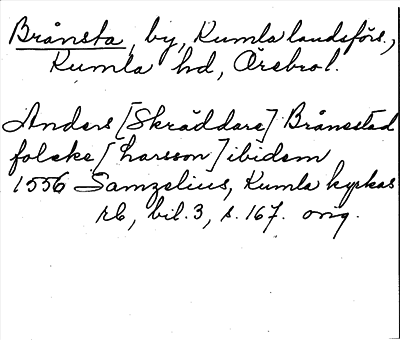 Brånsta, by, Kumla landsförs.,
Kumla hd, Örebro l.
Anders [Skräddare] Brånestad
folcke [Larsson] ibidem
1556 Samzelius, Kumla kyrkas
rb, bil. 3, s. 167. orig.